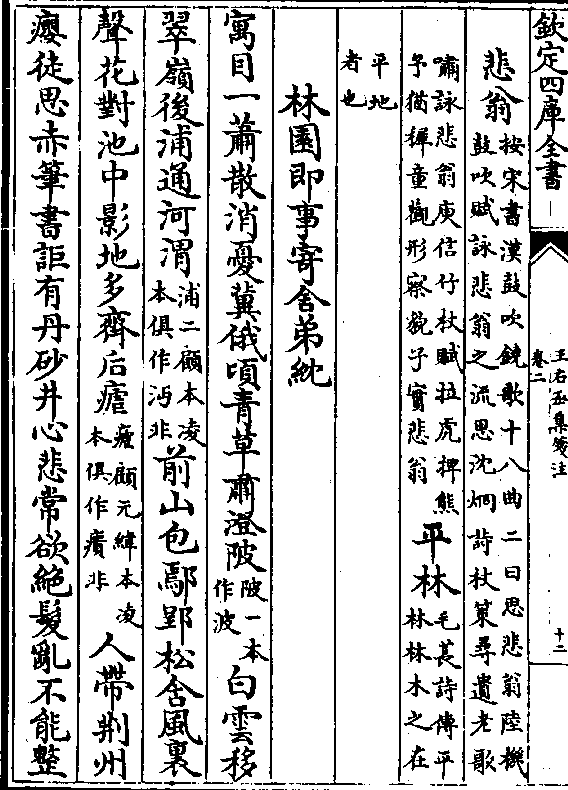 欽定四庫全書
王右丞集箋注
卷二
十二
悲翁
按宋書漢鼓吹鐃歌十八曲二曰思悲翁陸機
鼓吹賦詠悲翁之流思沈烱詩杖策尋遺老歌
嘯詠悲翁庾信竹杖賦拉虎捭熊
予猶稺童觀形察貌子實悲翁
平林
毛萇詩傳平
林林木之在
平地
者也
林園即事寄舍弟紞
寓目一蕭散消憂冀俄頃青草肅澄陂
陂一本
作波
白雲移
翠嶺後浦通河渭
浦二顧本凌
本俱作沔非
前山包鄢郢松含風裏
聲花對池中影地多齊后瘧
瘧顧元緯本凌
本俱作㿉非
人帶荆州
癭徒思赤筆書詎有丹砂井心悲常欲絶髮亂不能整